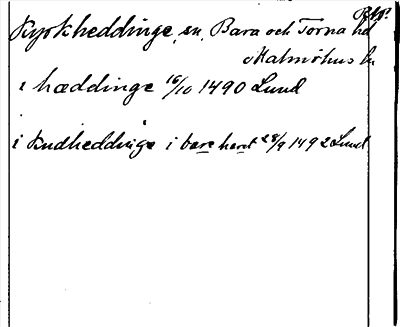 Kyrkheddinge, sn. Bara och Torna hd
Malmöhus l.
i hæddinge 16/10 1490 Lund
i Kudheddinge i bare haret 28/9 1492 Lund